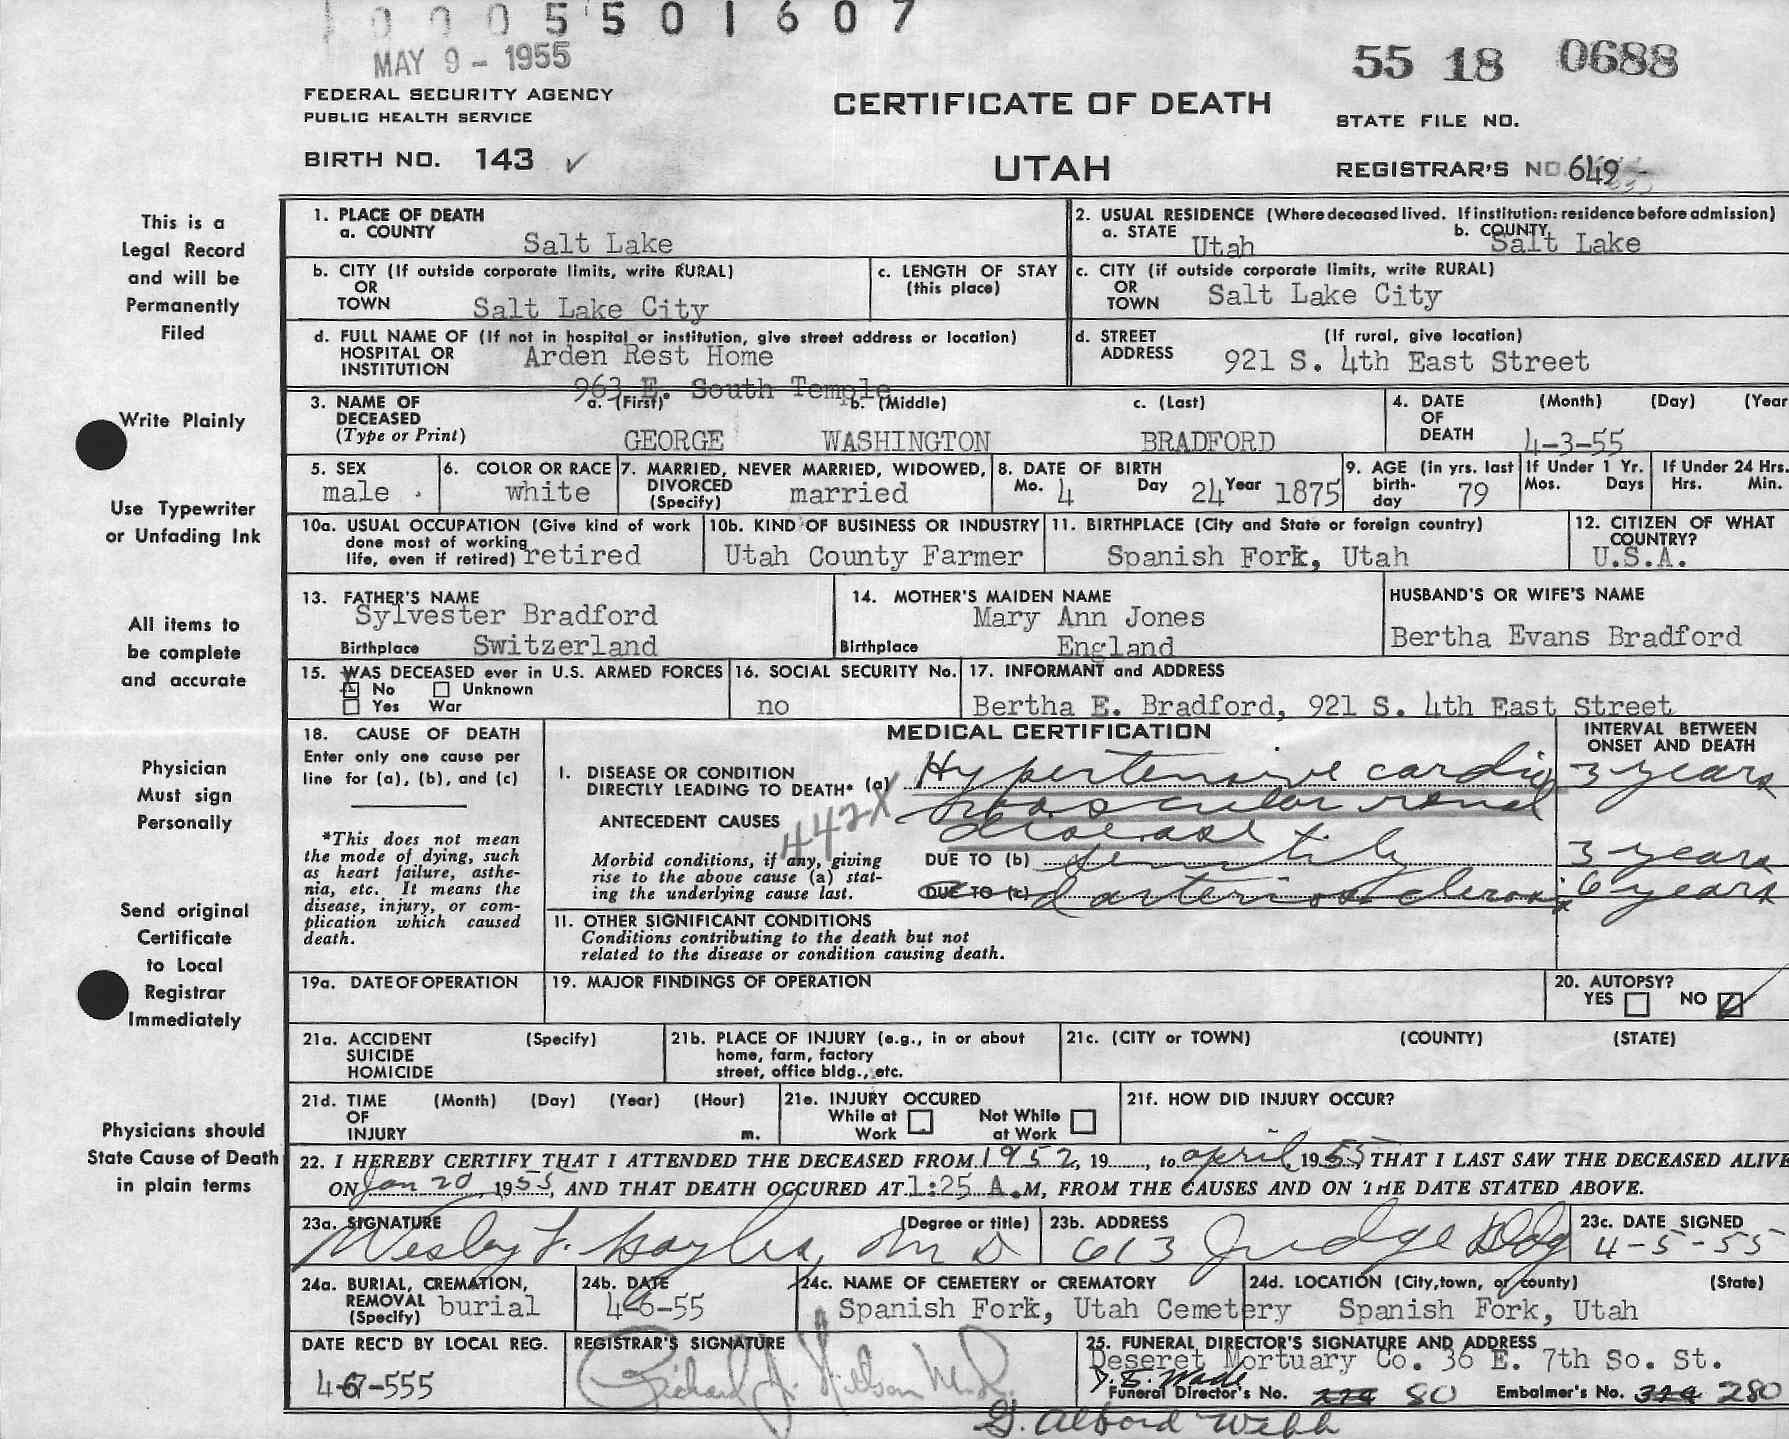 0005501607
MAY 9 - 1955
55 18 0688
FEDERAL SECURITY AGENCY
PUBLIC HEALTH SERVICE
CERTIFICATE OF DEATH
STATE FILE NO.
BIRTH NO. 143 ✓
UTAH
REGISTRAR'S NO. 649
This is a
Legal Record
and will be
Permanently
Filed
Write Plainly
Use Typewriter
or Unfading Ink
All items to
be complete
and accurate
Physician
Must sign
Personally
Send original
Certificate
to Local
Registrar
Immediately
Physicians should
State Cause of Death
in plain terms
1. PLACE OF DEATH
a. COUNTY Salt Lake
2. USUAL RESIDENCE (Where deceased lived. If institution: residence before admission)
a. STATE Utah b. COUNTY Salt Lake
b. CITY (If outside corporate limits, write RURAL)
OR
TOWN Salt Lake City
c. LENGTH OF STAY
(this place)
c. CITY (if outside corporate limits, write RURAL)
OR
TOWN Salt Lake City
d. FULL NAME OF (If not in hospital or institution, give street address or location)
HOSPITAL OR
INSTITUTION Arden Rest Home
963 E. South Temple
d. STREET (If rural, give location)
ADDRESS 921 S. 4th East Street
3. NAME OF
DECEASED
(Type or Print)
a. (First) b. (Middle) c. (Last)
GEORGE WASHINGTON BRADFORD
4. DATE (Month) (Day) (Year
OF
DEATH 4-3-55
5. SEX
male
6. COLOR OR RACE
white
7. MARRIED, NEVER MARRIED, WIDOWED,
DIVORCED
(Specify) married
8. DATE OF BIRTH
Mo. 4 Day 24 Year 1875
9. AGE (in yrs. last
birth-
day 79
If Under 1 Yr.
Mos. Days
If Under 24 Hrs.
Hrs. Min.
10a. USUAL OCCUPATION (Give kind of work
done most of working
life, even if retired) retired
10b. KIND OF BUSINESS OR INDUSTRY
Utah County Farmer
11. BIRTHPLACE (City and State or foreign country)
Spanish Fork, Utah
12. CITIZEN OF WHAT
COUNTRY?
U.S.A.
13. FATHER'S NAME
Sylvester Bradford
Birthplace Switzerland
14. MOTHER'S MAIDEN NAME
Mary Ann Jones
Birthplace England
HUSBAND'S OR WIFE'S NAME
Bertha Evans Bradford
15. WAS DECEASED ever in U.S. ARMED FORCES
No Unknown
Yes War
16. SOCIAL SECURITY No.
no
17. INFORMANT and ADDRESS
Bertha E. Bradford, 921 S. 4th East Street
18. CAUSE OF DEATH
Enter only one cause per
line for (a), (b), and (c)
*This does not mean
the mode of dying, such
as heart failure, asthe-
nia, etc. It means the
disease, injury, or com-
plication which caused
death.
MEDICAL CERTIFICATION
INTERVAL BETWEEN
ONSET AND DEATH
I. DISEASE OR CONDITION
DIRECTLY LEADING TO DEATH* (a) Hypertensive cardio 3 years
vascular renal
disease
ANTECEDENT CAUSES 442X
Morbid conditions, if any, giving
rise to the above cause (a) stat-
ing the underlying cause last.
DUE TO (b) senility 3 years
DUE TO (c) and arteriosclerosis 6 years
II. OTHER SIGNIFICANT CONDITIONS
Conditions contributing to the death but not
related to the disease or condition causing death.
19a. DATE OF OPERATION
19. MAJOR FINDINGS OF OPERATION
20. AUTOPSY?
YES NO
21a. ACCIDENT (Specify)
SUICIDE
HOMICIDE
21b. PLACE OF INJURY (e.g., in or about
home, farm, factory
street, office bldg., etc.
21c. (CITY or TOWN) (COUNTY) (STATE)
21d. TIME (Month) (Day) (Year) (Hour)
OF
INJURY m.
21e. INJURY OCCURED
While at Work Not While at Work
21f. HOW DID INJURY OCCUR?
22. I HEREBY CERTIFY THAT I ATTENDED THE DECEASED FROM 1952, 19....., to april, 1955, THAT I LAST SAW THE DECEASED ALIVE
ON Jan 20, 1955, AND THAT DEATH OCCURED AT 1:25 A.M, FROM THE CAUSES AND ON THE DATE STATED ABOVE.
23a. SIGNATURE (Degree or title)
Wesley F. MD
23b. ADDRESS
613 Judge Bldg
23c. DATE SIGNED
4-5-55
24a. BURIAL, CREMATION,
REMOVAL
(Specify) burial
24b. DATE
4-6-55
24c. NAME OF CEMETERY or CREMATORY
Spanish Fork, Utah Cemetery
24d. LOCATION (City, town, or county) (State)
Spanish Fork, Utah
DATE REC'D BY LOCAL REG.
REGISTRAR'S SIGNATURE
Richard J. Nilson M.D.
25. FUNERAL DIRECTOR'S SIGNATURE AND ADDRESS
Deseret Mortuary Co. 36 E. 7th So. St.
Wade
Funeral Director's No. 80 Embalmer's No. 280
G. Albord Webb